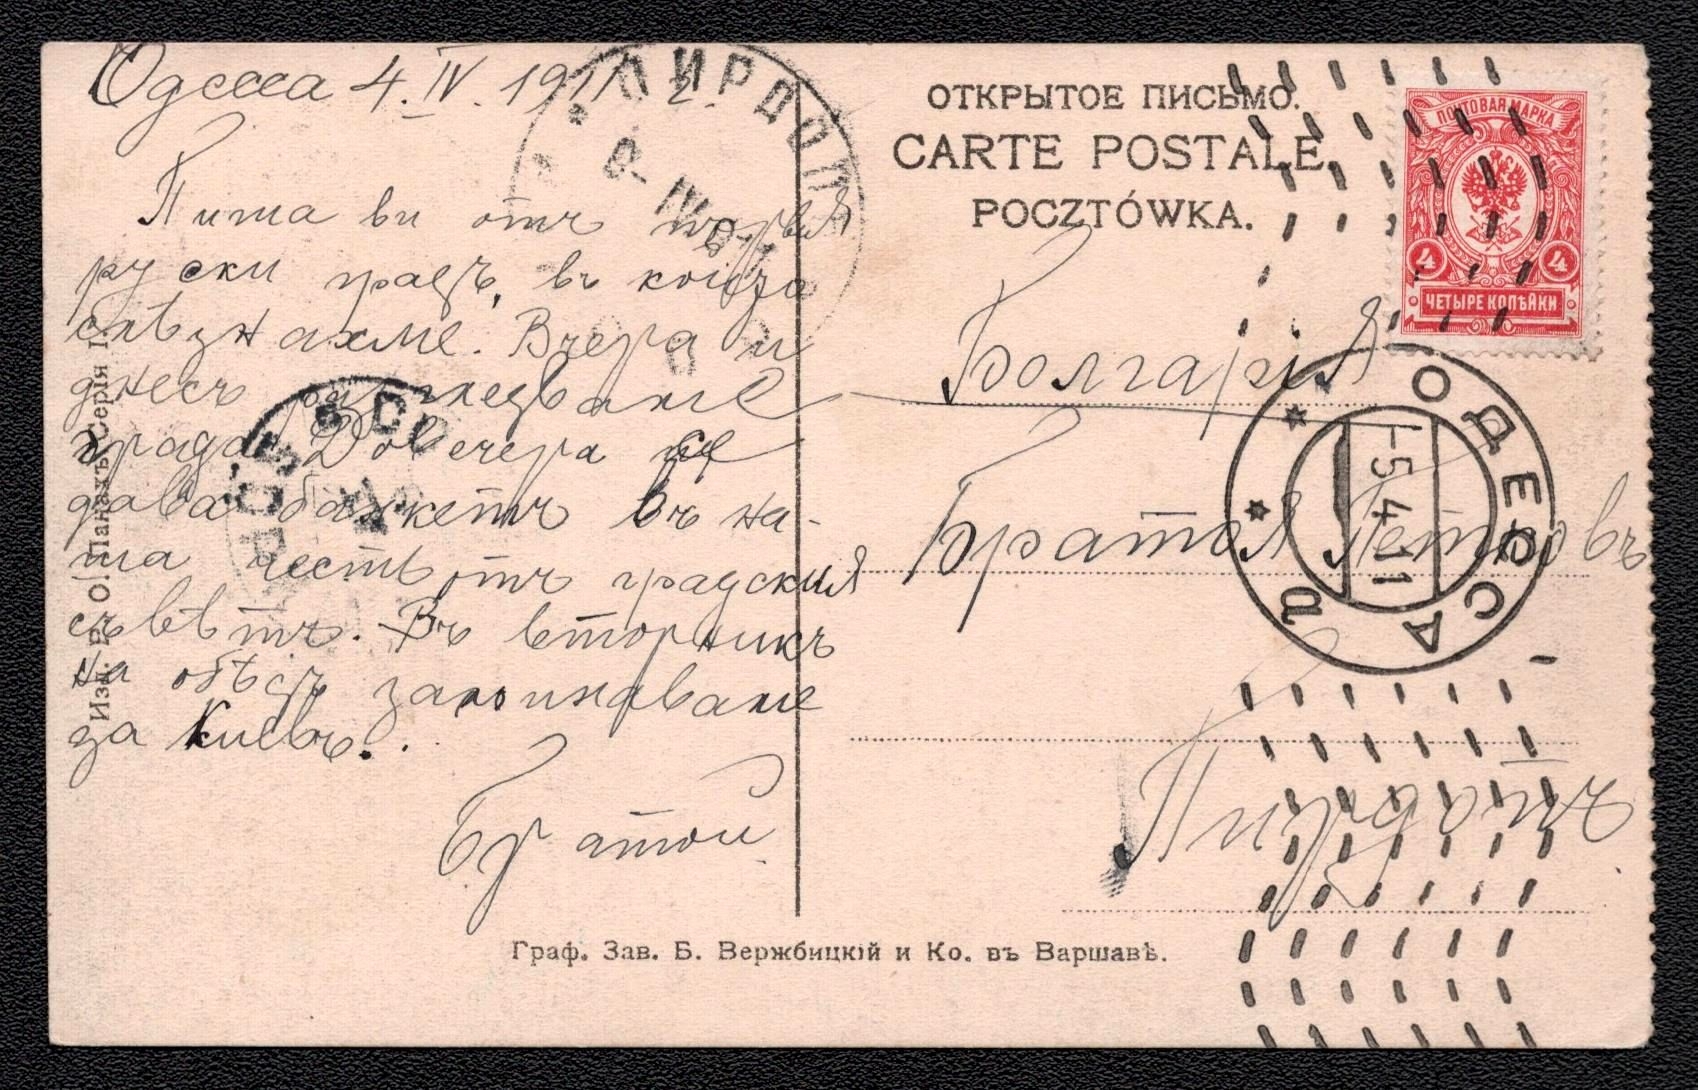 Одесса 4.IV.1911 г.
Пиша ви отъ първия
руски градъ, въ който
слѣзнахме. Вчера и
днесъ разгледваме
града. Довечера се
дава банкетъ въ на-
ша честь отъ градския
съвѣтъ. Въ вторникъ
на обѣдъ заминаваме
за Киевъ.
Братой
ОТКРЫТОЕ ПИСЬМО.
CARTE POSTALE.
POCZTÓWKA.
ПОЧТОВАЯ МАРКА
4 4
ЧЕТЫРЕ КОПѢЙКИ
Болгарія
Братья Петковъ
ПИРДОП
ОДЕССА
-5.4.11
Д
Изд. В. О. Панахъ. Серія I.
Граф. Зав. Б. Вержбицкій и Ко. въ Варшавѣ.